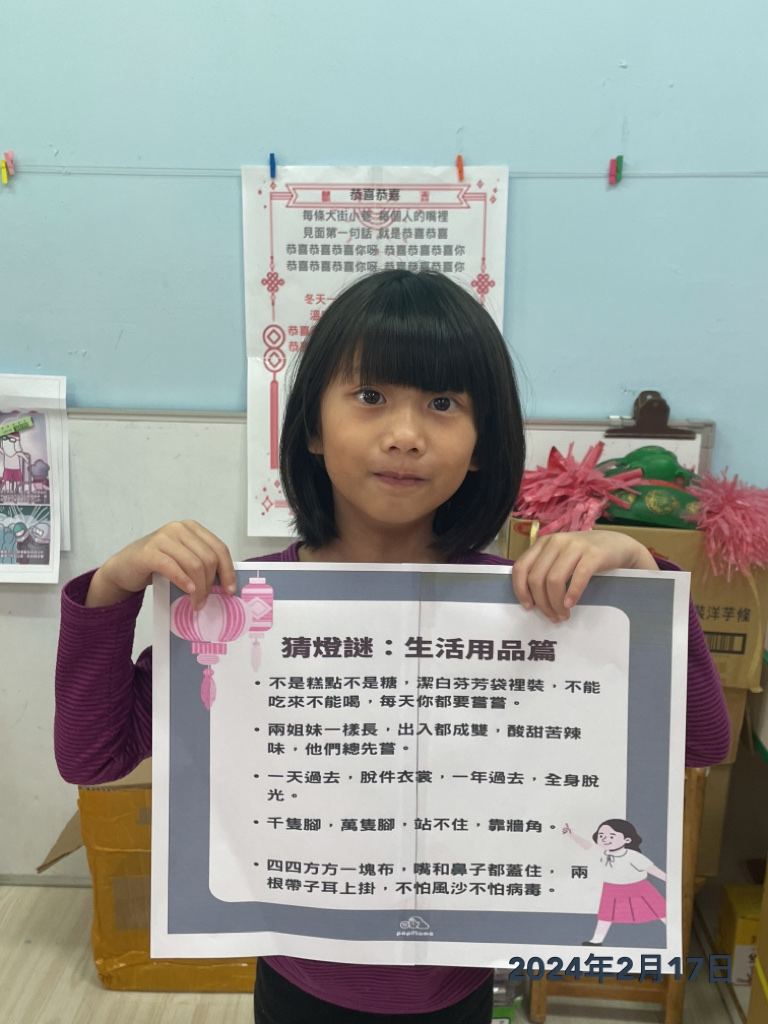 恭喜恭喜
每條大街小巷 每個人的嘴裡
見面第一句話 就是恭喜恭喜
恭喜恭喜恭喜你呀 恭喜恭喜恭喜你
恭喜恭喜恭喜你呀 恭喜恭喜恭喜你
冬天一
溫
恭喜
恭喜
裝洋芋條
猜燈謎：生活用品篇
•不是糕點不是糖，潔白芬芳袋裡裝，不能
吃來不能喝，每天你都要嘗嘗。
•兩姐妹一樣長，出入都成雙，酸甜苦辣
味，他們總先嘗。
•一天過去，脫件衣裳，一年過去，全身脫
光。
•千隻腳，萬隻腳，站不住，靠牆角。
•四四方方一塊布，嘴和鼻子都蓋住， 兩
根帶子耳上掛，不怕風沙不怕病毒。
2024年2月17日